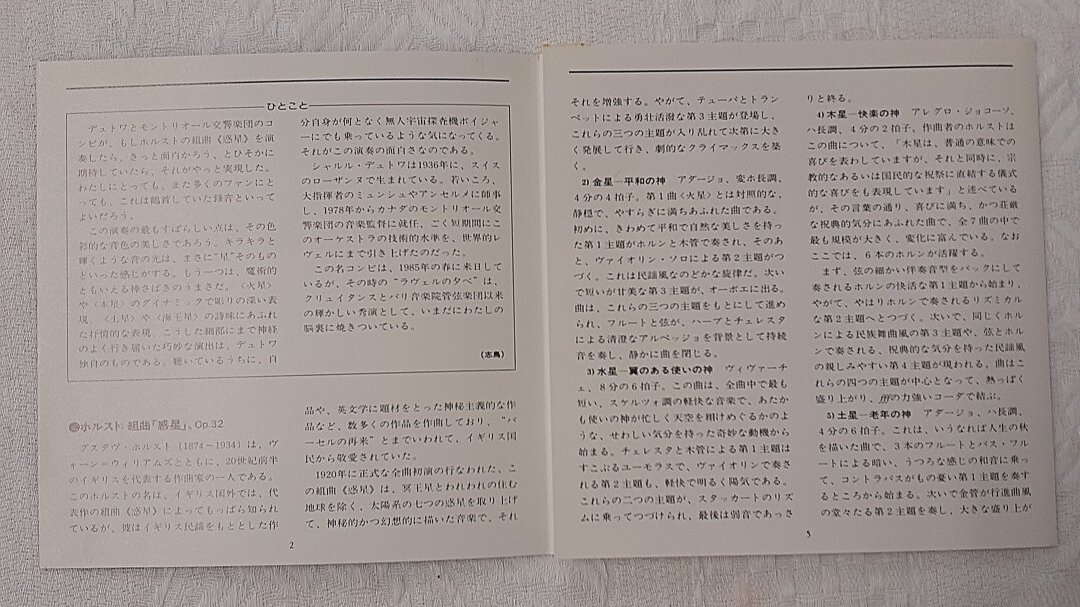 ひとこと
デュトワとモントリオール交響楽団のコ
ンビが、もしホルストの組曲《惑星》を演
奏したら、きっと面白かろう、とひそかに
期待していたら、それがやっと実現した。
わたしにとっても、また多くのファンにと
っても、これは鶴首していた録音といって
よいだろう。
この演奏の最もすばらしい点は、その色
彩的な音色の美しさであろう。キラキラと
輝くような音の光は、まさに“星”そのもの
といった感じがする。もう一つは、魔術的
ともいえる棒さばきのうまさだ。〈火星〉
や〈木星〉のダイナミックで彫りの深い表
現、〈土星〉や〈海王星〉の詩味にあふれ
た抒情的な表現、こうした細部にまで神経
のよく行き届いた巧妙な演出は、デュトワ
独自のものである。聴いているうちに、自
分自身が何となく無人宇宙探査機ボイジャ
ーにでも乗っているような気になってくる。
それがこの演奏の面白さなのである。
シャルル・デュトワは1936年に、スイス
のローザンヌで生まれている。若いころ、
大指揮者のミュンシュやアンセルメに師事
し、1978年からカナダのモントリオール交
響楽団の音楽監督に就任、ごく短期間にこ
のオーケストラの技術的水準を、世界的レ
ヴェルにまで引き上げたのだった。
この名コンビは、1985年の春に来日して
いるが、その時の“ラヴェルの夕べ”は、
クリュイタンスとパリ音楽院管弦楽団以来
の輝かしい秀演として、いまだにわたしの
脳裏に焼きついている。
(志鳥)
ホルスト：組曲「惑星」、Op.32
グスタヴ・ホルスト（1874〜1934）は、ヴ
ォーン＝ウィリアムズとともに、20世紀前半
のイギリスを代表する作曲家の一人である。
このホルストの名は、イギリス国外では、代
表作の組曲《惑星》によってもっぱら知られ
ているが、彼はイギリス民謡をもととした作
品や、英文学に題材をとった神秘主義的な作
品など、数多くの作品を作曲しており、“パ
ーセルの再来”とまでいわれて、イギリス国
民から敬愛されていた。
1920年に正式な全曲初演の行なわれた、こ
の組曲《惑星》は、冥王星とわれわれの住む
地球を除く、太陽系の七つの惑星を取り上げ
て、神秘的かつ幻想的に描いた音楽で、それ
2
それを増強する。やがて、テューバとトラン
ペットによる勇壮活潑な第3主題が登場し、
これらの三つの主題が入り乱れて次第に大き
く発展して行き、劇的なクライマックスを築
く。
2）金星―平和の神　アダージョ、変ホ長調、
4分の4拍子。第1曲〈火星〉とは対照的な、
静穏で、やすらぎに満ちあふれた曲である。
初めに、きわめて平和で自然な美しさを持っ
た第1主題がホルンと木管で奏され、そのあ
と、ヴァイオリン・ソロによる第2主題がつ
づく。これは民謡風なのどかな旋律だ。次い
で短いが甘美な第3主題が、オーボエに出る。
曲は、これらの三つの主題をもとにして進め
られ、フルートと弦が、ハープとチェレスタ
による清澄なアルペッジョを背景として持続
音を奏し、静かに曲を閉じる。
3）水星―翼のある使いの神　ヴィヴァーチ
ェ、8分の6拍子。この曲は、全曲中で最も
短い、スケルツォ調の軽快な音楽で、あたか
も使いの神が忙しく天空を翔けめぐるかのよ
うな、せわしい気分を持った奇妙な動機から
始まる。チェレスタと木管による第1主題は
すこぶるユーモラスで、ヴァイオリンで奏さ
れる第2主題も、軽快で明るく陽気である。
これらの二つの主題が、スタッカートのリズ
ムに乗ってつづけられ、最後は弱音であっさ
りと終る。
4）木星―快楽の神　アレグロ・ジョコーソ、
ハ長調、4分の2拍子。作曲者のホルストは
この曲について、「木星は、普通の意味での
喜びを表わしていますが、それと同時に、宗
教的なあるいは国民的な祝祭に直結する儀式
的な喜びをも表現しています」と述べている
が、その言葉の通り、喜びに満ち、かつ荘厳
な祝典的気分にあふれた曲で、全7曲の中で
最も規模が大きく、変化に富んでいる。なお
ここでは、6本のホルンが活躍する。
まず、弦の細かい伴奏音型をバックにして
奏されるホルンの快活な第1主題から始まり、
やがて、やはりホルンで奏されるリズミカル
な第2主題へとつづく。次いで、同じくホル
ンによる民族舞曲風の第3主題や、弦とホル
ンで奏される、祝典的な気分を持った民謡風
の親しみやすい第4主題が現われる。曲はこ
れらの四つの主題が中心となって、熱っぽく
盛り上がり、fffの力強いコーダで結ぶ。
5）土星―老年の神　アダージョ、ハ長調、
4分の6拍子。これは、いうなれば人生の秋
を描いた曲で、3本のフルートとバス・フル
ートによる暗い、うつろな感じの和音に乗っ
て、コントラバスがもの憂い第1主題を奏す
るところから始まる。次いで金管が行進曲風
の堂々たる第2主題を奏し、大きな盛り上が
5